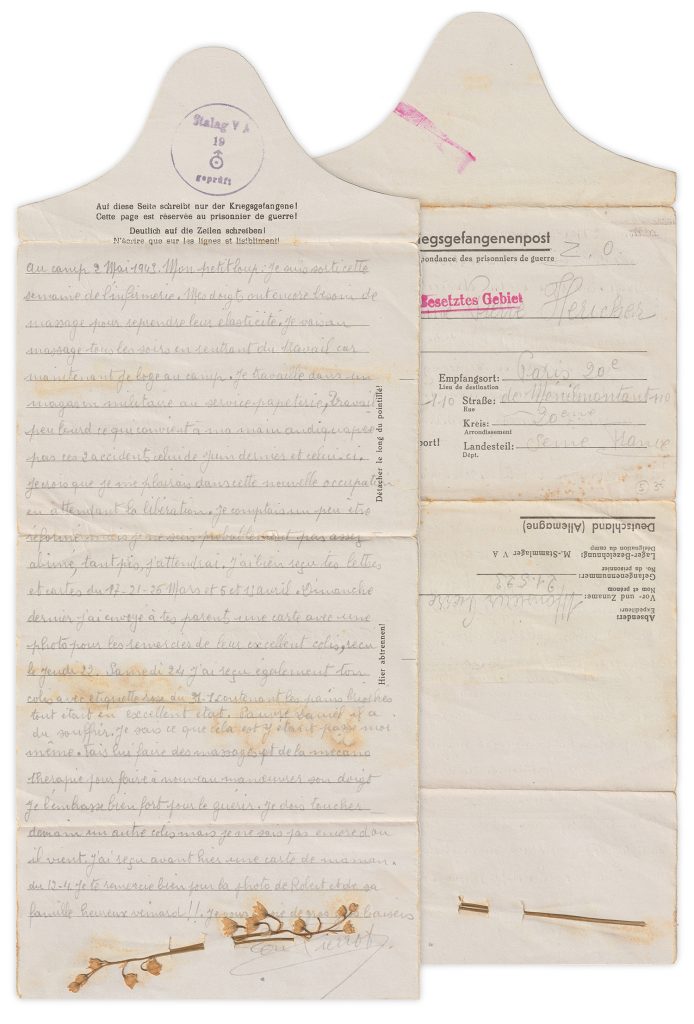 Stalag V A
19
geprüft
Auf diese Seite schreibt nur der Kriegsgefangene!
Cette page est réservée au prisonnier de guerre!
Deutlich auf die Zeilen schreiben!
N'écrire que sur les lignes et lisiblement!
Au camp 2 Mai 1943. Mon petit loup: Je suis sorti cette
semaine de l'infirmerie. Mes doigts ont encore besoin de
massage pour reprendre leur elasticité. Je vais au
massage tous les soirs en rentrant du travail car
maintenant je loge au camp. Je travaille dans un
magasin militaire au service papeterie. Travail
peu lourd ce qui convient à ma main
pas ces 2 accidents celui de Juin dernier et celui-ci.
Je crois que je me plairais dans cette nouvelle occupation
en attendant la libération. Je comptais un peu être
réformé mais je ne suis probablement pas assez
abimé, tant pis, j'attendrai. J'ai bien reçu tes lettres
et cartes du 17-21-26 Mars et 5 et 11 avril. Dimanche
dernier j'ai envoyé à tes parents une carte avec une
photo pour les remercier de leur excellent colis, reçu
le jeudi 22. Samedi 24 j'ai reçu également ton
colis avec etiquette contenant les pains
tout était en excellent état. Pauvre Daniel il a
du souffrir. Je sais ce que cela est y étant passé moi
même. Fais lui faire des massages et de la mécano
thérapie pour faire à nouveau manœuvrer son doigt
Je l'embrasse bien fort pour le guérir. Je dois toucher
demain un autre colis mais je ne sais pas encore d'où
il vient. J'ai reçu avant hier une carte de maman
du 12-4 Je te remercie bien pour la photo de Robert et de sa
famille heureux veinard!! Je baisers
Détacher le long du pointillé!
Hier abtrennen!
iegsgefangenenpost
pondance des prisonniers de guerre
Z.O
Besetztes Gebiet
Hericher
Empfangsort: Paris 20e
Lieu de destination
Straße: de Ménilmontant 110
Rue
Kreis: 20eme
Arrondissement
port!
Landesteil: Seine France
Dépt.
Deutschland (Allemagne)
Lager-Bezeichnung: M.-Stammlager V A
Désignation du camp
Gefangenennummer:
No. du prisonnier
Vor- und Zuname:
Nom et prénom
Absender:
Expéditeur: